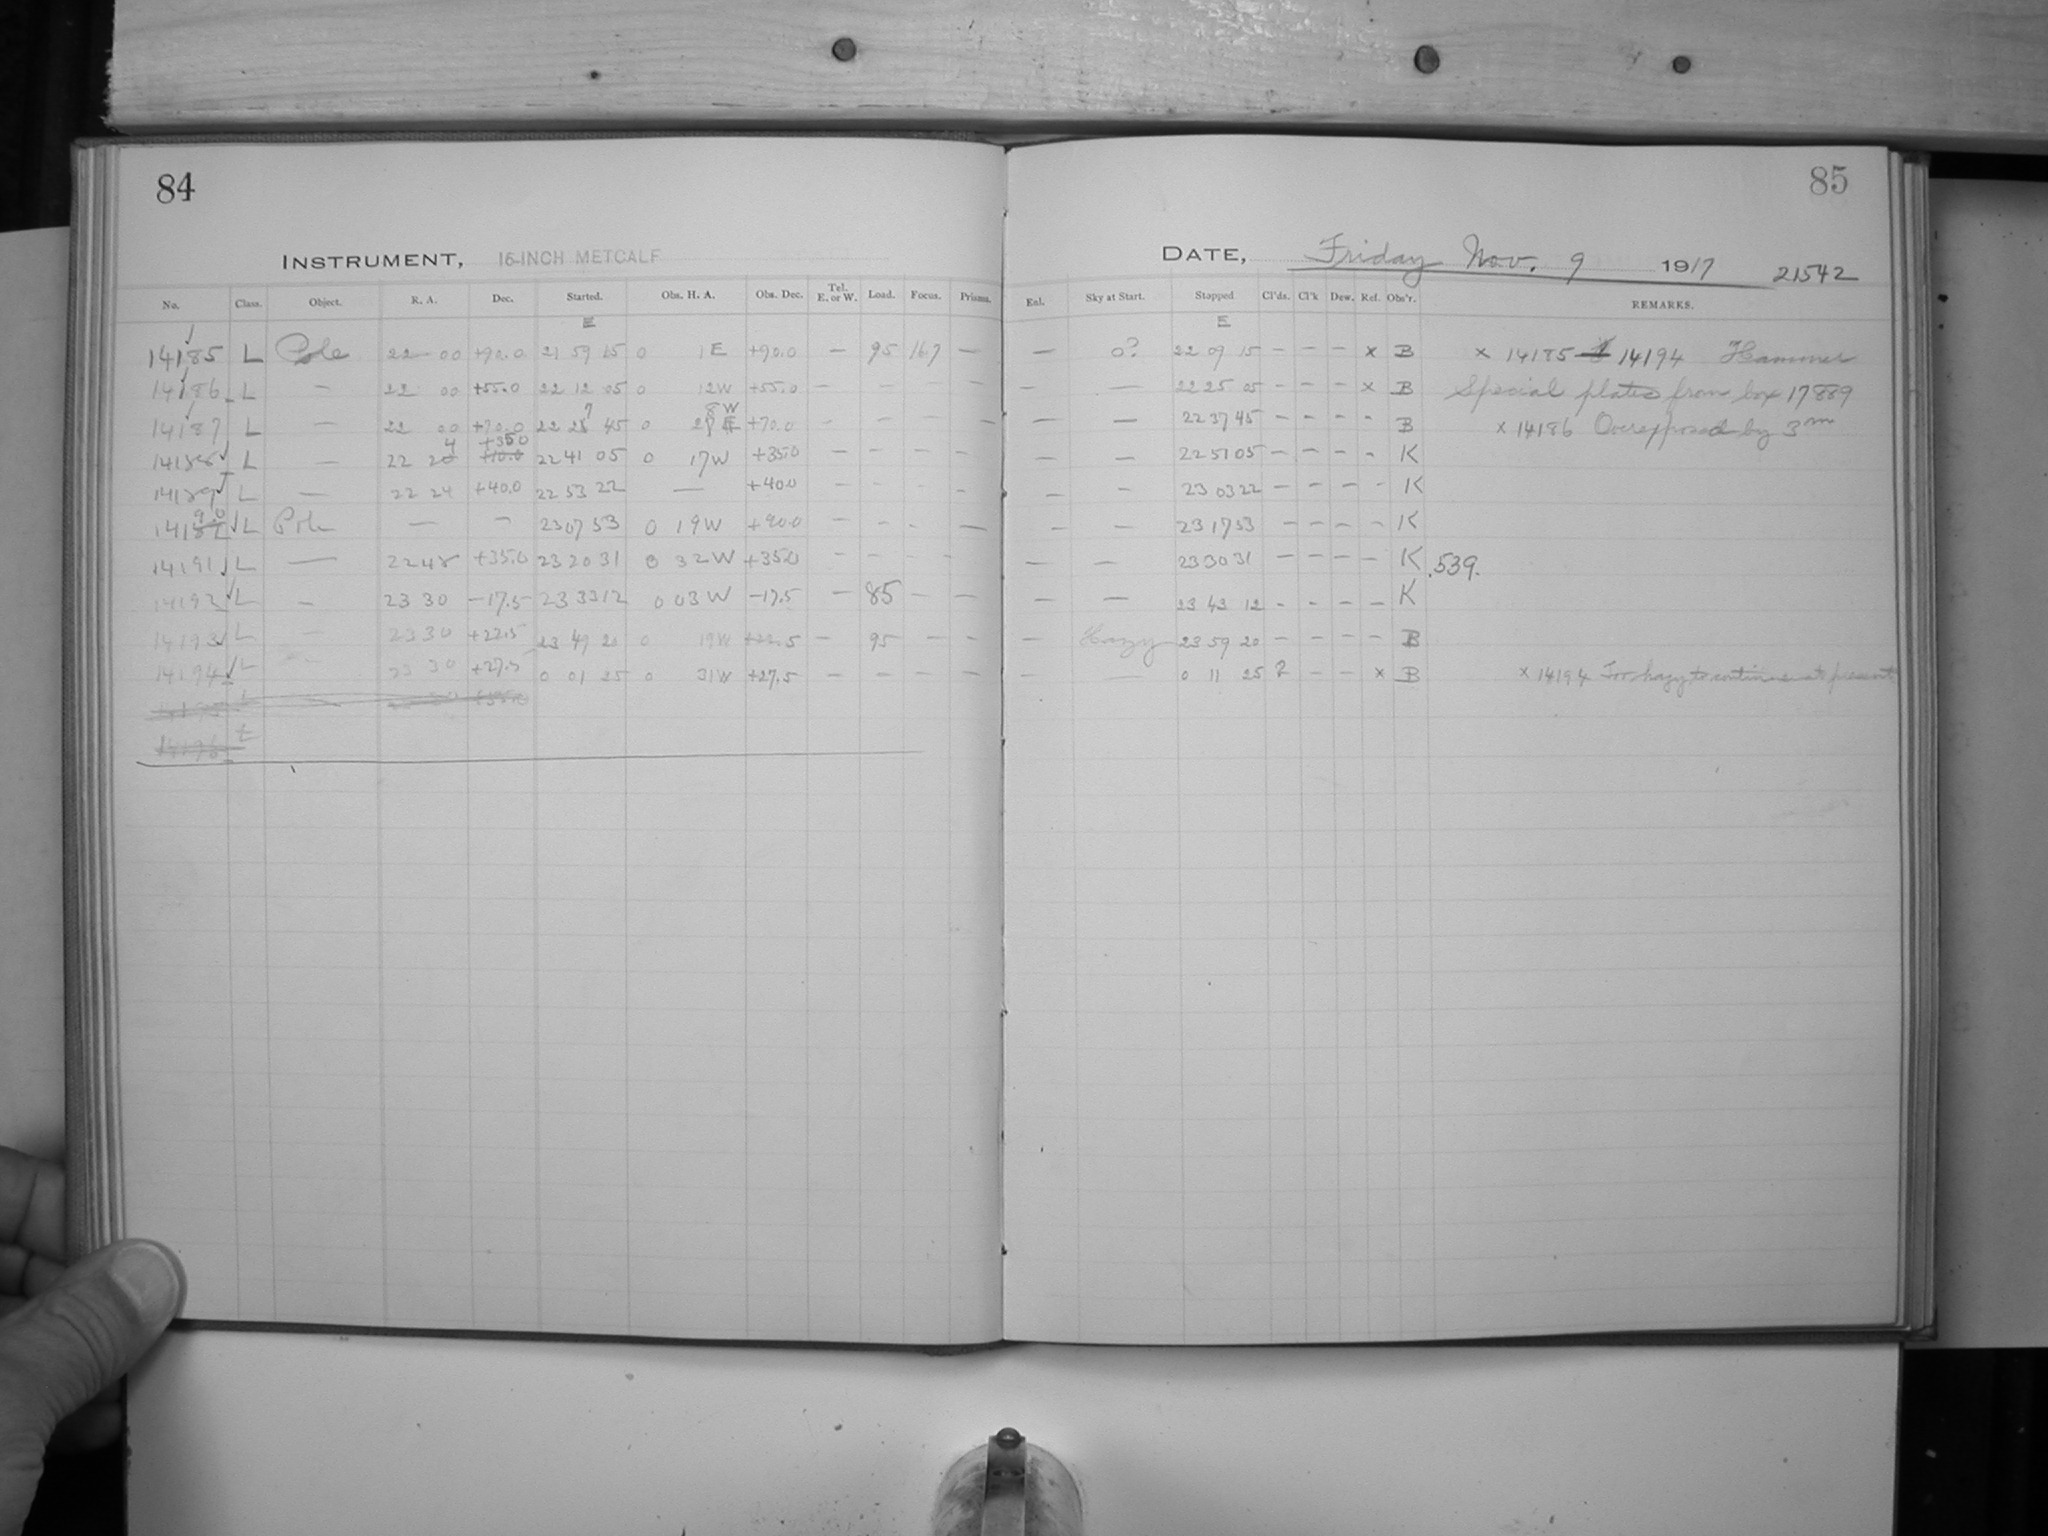 84
85
INSTRUMENT, 16-INCH METCALF
DATE, Friday Nov. 9 1917 21542
No. Class. Object. R. A. Dec. Started. Obs. H. A. Obs. Dec. Tel. E. or W. Load. Focus. Prisms. Enl. Sky at Start. Stopped Cl'ds. Cl'k Dew. Ref. Obs'r. REMARKS.
E E
14185 L Pole 22 00 +90.0 21 59 15 0 1 E +90.0 — 95 16.7 — — 0? 22 09 15 — — — x B x 14185 14194 Hammer
14186 L — 22 00 +55.0 22 12 05 0 12 W +55.0 — — — — — 22 25 05 — — — x B Special plates from box 17889
14187 L — 22 00 +70.0 22 27 45 0 28 W +70.0 — — — — — — 22 37 45 — — — — B x 14186 Overexposed by 3m
14188 L — 22 24 +35.0 22 41 05 0 17 W +35.0 — — — — — — 22 51 05 — — — — K
14189 L — 22 24 +40.0 22 53 22 — +40.0 — — — — — — 23 03 22 — — — — K
14190 L Pole — — 23 07 53 0 19 W +90.0 — — — — — — 23 17 53 — — — — K
14191 L — 22 48 +35.0 23 20 31 0 32 W +35.0 — — — — — — 23 30 31 — — — — K .539.
14192 L — 23 30 −17.5 23 33 12 0 03 W −17.5 — 85 — — — — 23 43 12 — — — — K
14193 L — 23 30 +22.5 23 49 20 0 19 W +22.5 — 95 — — — Hazy 23 59 20 — — — — B
14194 L — 23 30 +27.5 0 01 25 0 31 W +27.5 — — — — — — 0 11 25 2 — — x B x 14194 Too hazy to continue at present
14195 L +35.0
14196 L